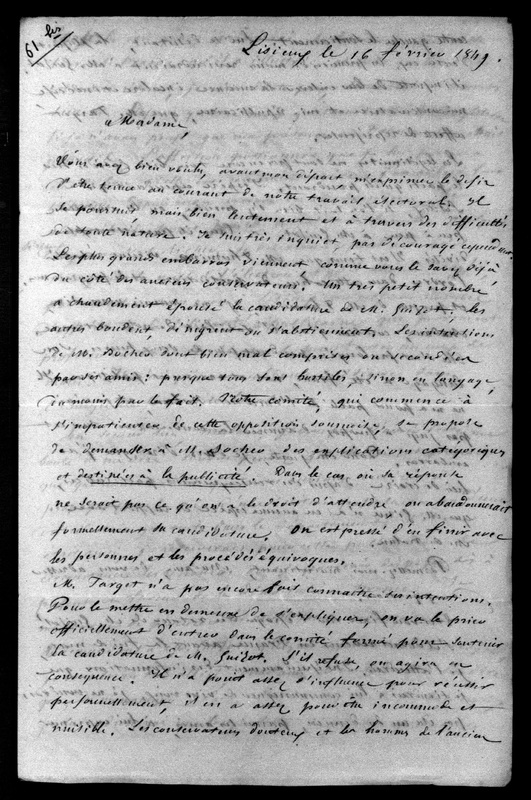 61 bis
Lisieux le 16 février 1849.
Madame,
Vous avez bien voulu, avant mon départ m'exprimer le désir
d'être tenue au courant de notre travail électoral. Il
se poursuit mais bien lentement et à travers des difficultés
de toute nature. Je suis très inquiet, pas découragé cependant.
Les plus grands embarras viennent comme vous le savez déjà
du côté des anciens conservateurs. Un très petit nombre
a chaudement épousé la candidature de M. Guizot; les
autres boudent, dénigrent ou s'abstiennent. Les intentions
de M. Bocher sont bien mal comprises ou secondées
par ses amis: presque tous sont hostiles, sinon en langage,
du moins par le fait. Notre comité, qui commence à
s'impatienter de cette opposition sournoise, se propose
de demander à M. Bocher des explications catégoriques
et destinées à la publicité. Dans le cas où sa réponse
ne serait pas ce qu'on a le droit d'attendre on abandonnerait
formellement sa candidature. On est pressé d'en finir avec
les personnes et les procédés équivoques.
M. Target n'a pas encore fait connaître ses intentions.
Pour le mettre en demeure de s'expliquer, on va le prier
officiellement d'entrer dans le comité formé pour soutenir
la candidature de M. Guizot. S'il refuse, on agira en
conséquence. Il n'a point assez d'influence pour réussir
personnellement, il en a assez pour être incommode et
nuisible. Les conservateurs douteux et les hommes de l'ancien